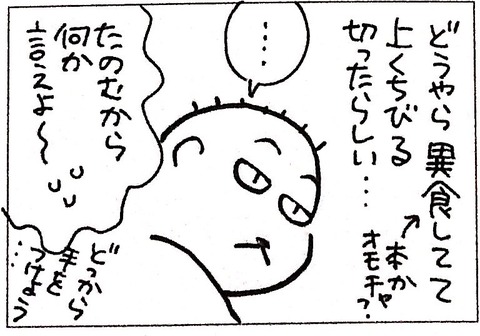 どうやら異食してて
上くちびる
切ったらしい…
↑本か
オモチャ?
……
たのむから
何か
言えよ〜
どっから
手を
つけよう
…